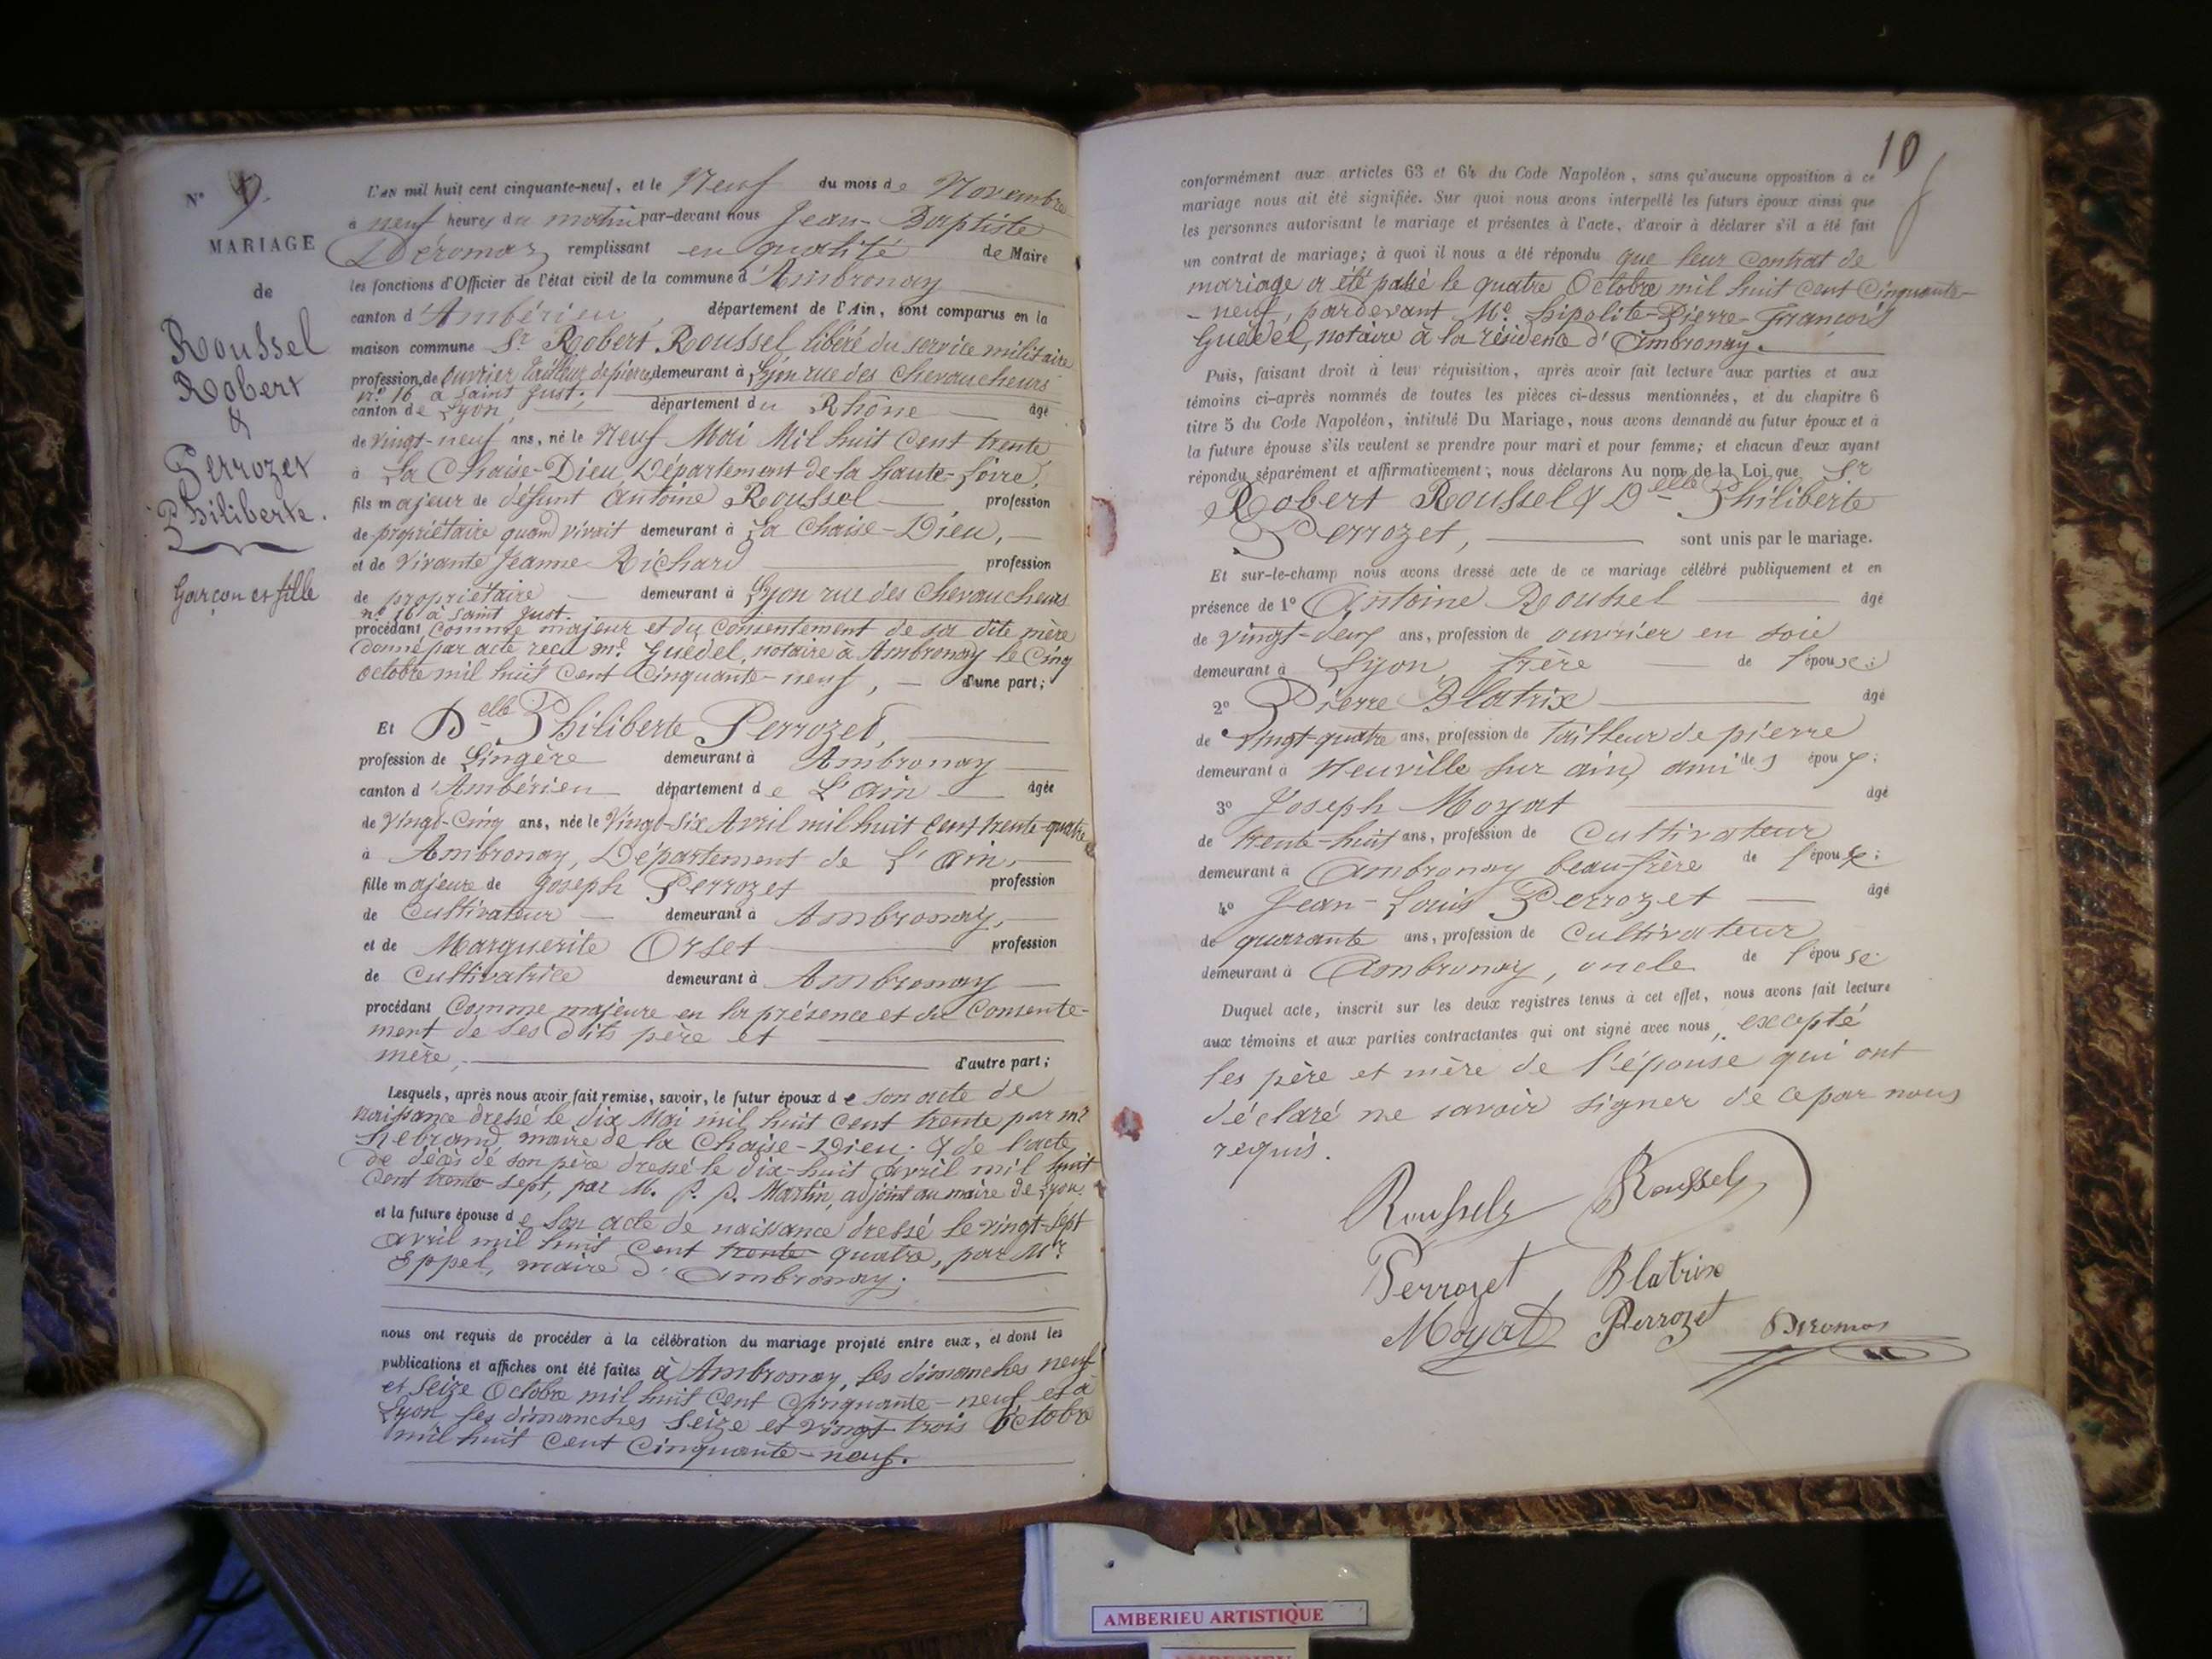 N° 9.
MARIAGE
de
Roussel
Robert
&
Perrozet
Philiberte.
Garçon et fille
L'AN mil huit cent cinquante-neuf, et le Neuf du mois de Novembre
à neuf heures du matin par-devant nous Jean-Baptiste
Déromas remplissant en qualité de Maire
les fonctions d'Officier de l'état civil de la commune d'Ambronay
canton d'Ambérieu, département de l'Ain, sont comparus en la
maison commune Sr Robert Roussel libéré du service militaire
profession de ouvrier tailleur de pierre demeurant à Lyon rue des Chevaucheurs
n° 16 à Saint Just.
canton de Lyon département du Rhône âgé
de vingt-neuf ans, né le Neuf Mai Mil huit Cent trente
à La Chaise-Dieu, Département de la haute-Loire,
fils majeur de défunt Antoine Roussel profession
de propriétaire quand vivait demeurant à La Chaise-Dieu,
et de vivante Jeanne Richard profession
de propriétaire demeurant à Lyon rue des Chevaucheurs
n° 16 à Saint Just.
procédant comme majeur et du consentement de sa dite mère
donné par acte reçu Me Guédel, notaire à Ambronay le Cinq
octobre mil huit Cent Cinquante-neuf, d'une part;
Et Delle Philiberte Perrozet,
profession de Lingère demeurant à Ambronay
canton d'Ambérieu département de L'ain âgée
de Vingt-Cinq ans, née le Vingt-Six Avril mil huit Cent trente-quatre
à Ambronay, Département de L'ain,
fille majeure de Joseph Perrozet profession
de Cultivateur demeurant à Ambronay,
et de Marguerite Orset profession
de Cultivatrice demeurant à Ambronay
procédant Comme majeure en la présence et du Consente-
ment de ses dits père et
mère, d'autre part;
Lesquels, après nous avoir fait remise, savoir, le futur époux de son acte de
naissance dressé le dix Mai mil huit Cent trente par mr
maire de la Chaise-Dieu. & de l'acte
de décès de son père dressé le dix-huit avril mil huit
Cent trente-sept, par M. P. P. Martin, adjoint au maire de Lyon.
et la future épouse de Son acte de naissance dressé le vingt-sept
avril mil huit Cent trente-quatre, par Mr
Eppel, maire d'Ambronay.
nous ont requis de procéder à la célébration du mariage projeté entre eux, et dont les
publications et affiches ont été faites à Ambronay, les dimanches neuf
et Seize Octobre mil huit Cent Cinquante-neuf et à
Lyon les dimanches Seize et vingt-trois Octobre
mil huit Cent Cinquante-neuf.
10
conformément aux articles 63 et 64 du Code Napoléon, sans qu'aucune opposition à ce
mariage nous ait été signifiée. Sur quoi nous avons interpellé les futurs époux ainsi que
les personnes autorisant le mariage et présentes à l'acte, d'avoir à déclarer s'il a été fait
un contrat de mariage; à quoi il nous a été répondu que leur Contrat de
mariage a été passé le quatre Octobre mil huit Cent Cinquante-
-neuf, pardevant Me. hipolite-Pierre-François
Guédel, notaire à la résidence d'Ambronay.
Puis, faisant droit à leur réquisition, après avoir fait lecture aux parties et aux
témoins ci-après nommés de toutes les pièces ci-dessus mentionnées, et du chapitre 6
titre 5 du Code Napoléon, intitulé Du Mariage, nous avons demandé au futur époux et à
la future épouse s'ils veulent se prendre pour mari et pour femme; et chacun d'eux ayant
répondu séparément et affirmativement, nous déclarons Au nom de la Loi que Sr
Robert Roussel & Delle Philiberte
Perrozet, sont unis par le mariage.
Et sur-le-champ nous avons dressé acte de ce mariage célébré publiquement et en
présence de 1° Antoine Roussel âgé
de vingt-deux ans, profession de ouvrier en soie
demeurant à Lyon, frère de l'époux:
2° Pierre Blatrix âgé
de vingt-quatre ans, profession de tailleur de pierre
demeurant à Neuville sur ain, ami des époux:
3° Joseph Moyat âgé
de trente-huit ans, profession de Cultivateur
demeurant à Ambronay beau-frère de l'épouse:
4° Jean-Louis Perrozet âgé
de quarante ans, profession de Cultivateur
demeurant à Ambronay, oncle de l'épouse
Duquel acte, inscrit sur les deux registres tenus à cet effet, nous avons fait lecture
aux témoins et aux parties contractantes qui ont signé avec nous, excepté
les père et mère de l'épouse qui ont
déclaré ne savoir signer de ce par nous
requis.
Roussel Roussel
Perrozet Blatrix
Moyat Perrozet Déromas
AMBERIEU ARTISTIQUE
AMBERIEU